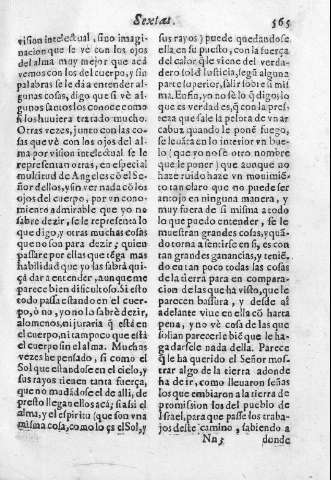 Sextas. 565
vision intelectual, sino imagi-
nacion que se vè con los ojos
del alma muy mejor que acà
vemos con los del cuerpo, y sin
palabras se le dà a entender al-
gunas cosas, digo que si vè al-
gunos santos los conoce como
si los huuiera tratado mucho.
Otras vezes, junto con las co-
sas que vè con los ojos del al-
ma por vision intelectual se le
representan otras, en especial
multitud de Angeles cõ el Se-
ñor dellos, y sin ver nada cõ los
ojos del cuerpo, por vn cono-
cimiento admirable que yo no
sabre dezir, se le representa lo
que digo, y otras muchas cosas
que no son para dezir; quien
passare por ellas que tẽga mas
habilidad que yo las sabrà qui-
çà dar a entender, aunque me
parece bien dificultoso. Si esto
todo passa estando en el cuer-
po, ò no, yo no lo sabrè dezir,
alomenos, ni juraria q̃ està en
el cuerpo, ni tampoco que està
el cuerpo sin el alma. Muchas
vezes he pensado, si como el
Sol que estandose en el cielo, y
sus rayos tienen tanta fuerça,
que no mudãdose el de alli, de
presto llegan ellos acà; si assi el
alma, y el espiritu (que son vna
misma cosa, como lo es el Sol, y
sus rayos) puede quedandose
ella en su puesto, con la fuerça
del calor q̃ le viene del verda-
dero sol de Justicia, segũ alguna
parte superior, salir sobre si mis
ma. Enfin, yo no sè lo q̃ digo, lo
que es verdad es, q̃ con la pres-
teza que sale la pelota de vn ar
cabuz quando le ponẽ fuego,
se leuãta en lo interior vn bue-
lo (que yo no sè otro nombre
que le poner) que aunque no
haze ruido haze vn mouimiẽ-
to tan claro que no puede ser
antojo en ninguna manera, y
muy fuera de si misma a todo
lo que puedo entender, se le
muestran grandes cosas, y quã-
do torna a sentirse en si, es con
tan grandes ganancias, y teniẽ-
do en tan poco todas las cosas
de la tierra para en compara-
cion de las que ha visto, que le
parecen basura, y desde ai
adelante viue en ella cõ harta
pena, y no vè cosa de las que
solian parecerle biẽ que le ha-
ga darsele nada della. Parece
q̃ le ha querido el Señor mos-
trar algo de la tierra adonde
ha de ir, como lleuaron señas
los que embiaron a la tierra de
promission los del pueblo de
Israel, para que passe los traba-
jos deste camino, sabiendo a
Nn 3 donde